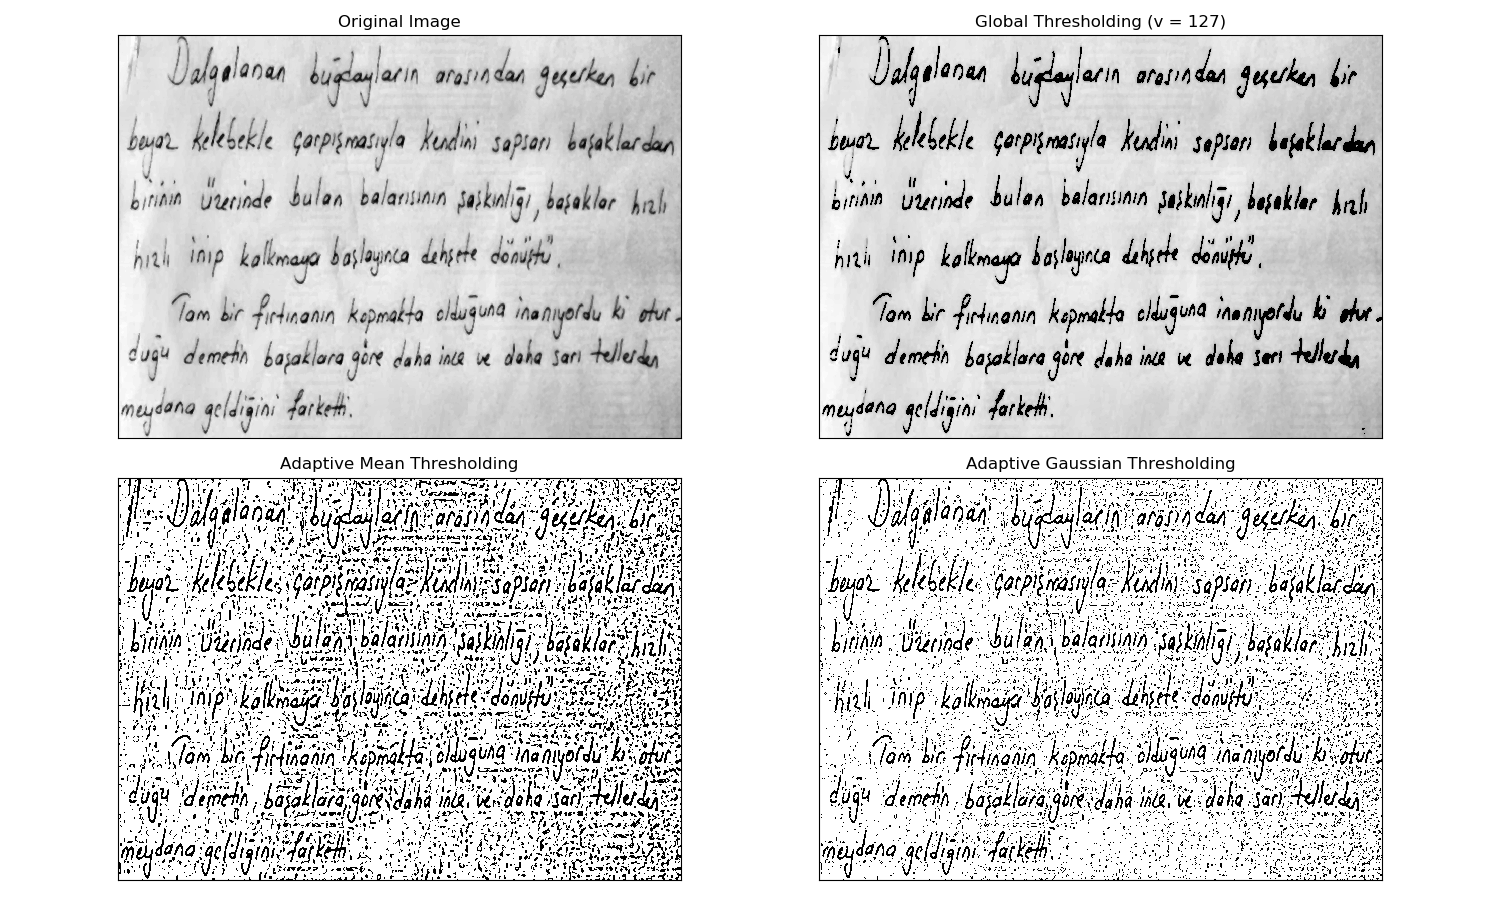 Original Image
Dalgalanan buğdayların arasından geçerken bir
beyaz kelebekle çarpışmasıyla kendini sapsarı başaklardan
birinin üzerinde bulan balarısının şaşkınlığı, başaklar hızlı
hızlı inip kalkmaya başlayınca dehşete dönüştü.
Tam bir fırtınanın kopmakta olduğuna inanıyordu ki otur-
duğu demetin başaklara göre daha ince ve daha sarı tellerden
meydana geldiğini farketti.
Global Thresholding (v = 127)
Dalgalanan buğdayların arasından geçerken bir
beyaz kelebekle çarpışmasıyla kendini sapsarı başaklardan
birinin üzerinde bulan balarısının şaşkınlığı, başaklar hızlı
hızlı inip kalkmaya başlayınca dehşete dönüştü.
Tam bir fırtınanın kopmakta olduğuna inanıyordu ki otur-
duğu demetin başaklara göre daha ince ve daha sarı tellerden
meydana geldiğini farketti.
Adaptive Mean Thresholding
Dalgalanan buğdayların arasından geçerken bir
beyaz kelebekle çarpışmasıyla kendini sapsarı başaklardan
birinin üzerinde bulan balarısının şaşkınlığı, başaklar hızlı
hızlı inip kalkmaya başlayınca dehşete dönüştü
Tam bir fırtınanın kopmakta olduğuna inanıyordu ki otur-
duğu demetin başaklara göre daha ince ve daha sarı tellerden
meydana geldiğini farketti.
Adaptive Gaussian Thresholding
Dalgalanan buğdayların arasından geçerken bir
beyaz kelebekle çarpışmasıyla kendini sapsarı başaklardan
birinin üzerinde bulan balarısının şaşkınlığı, başaklar hızlı
hızlı inip kalkmaya başlayınca dehşete dönüştü
Tam bir fırtınanın kopmakta olduğuna inanıyordu ki otur-
duğu demetin başaklara göre daha ince ve daha sarı tellerden
meydana geldiğini farketti.